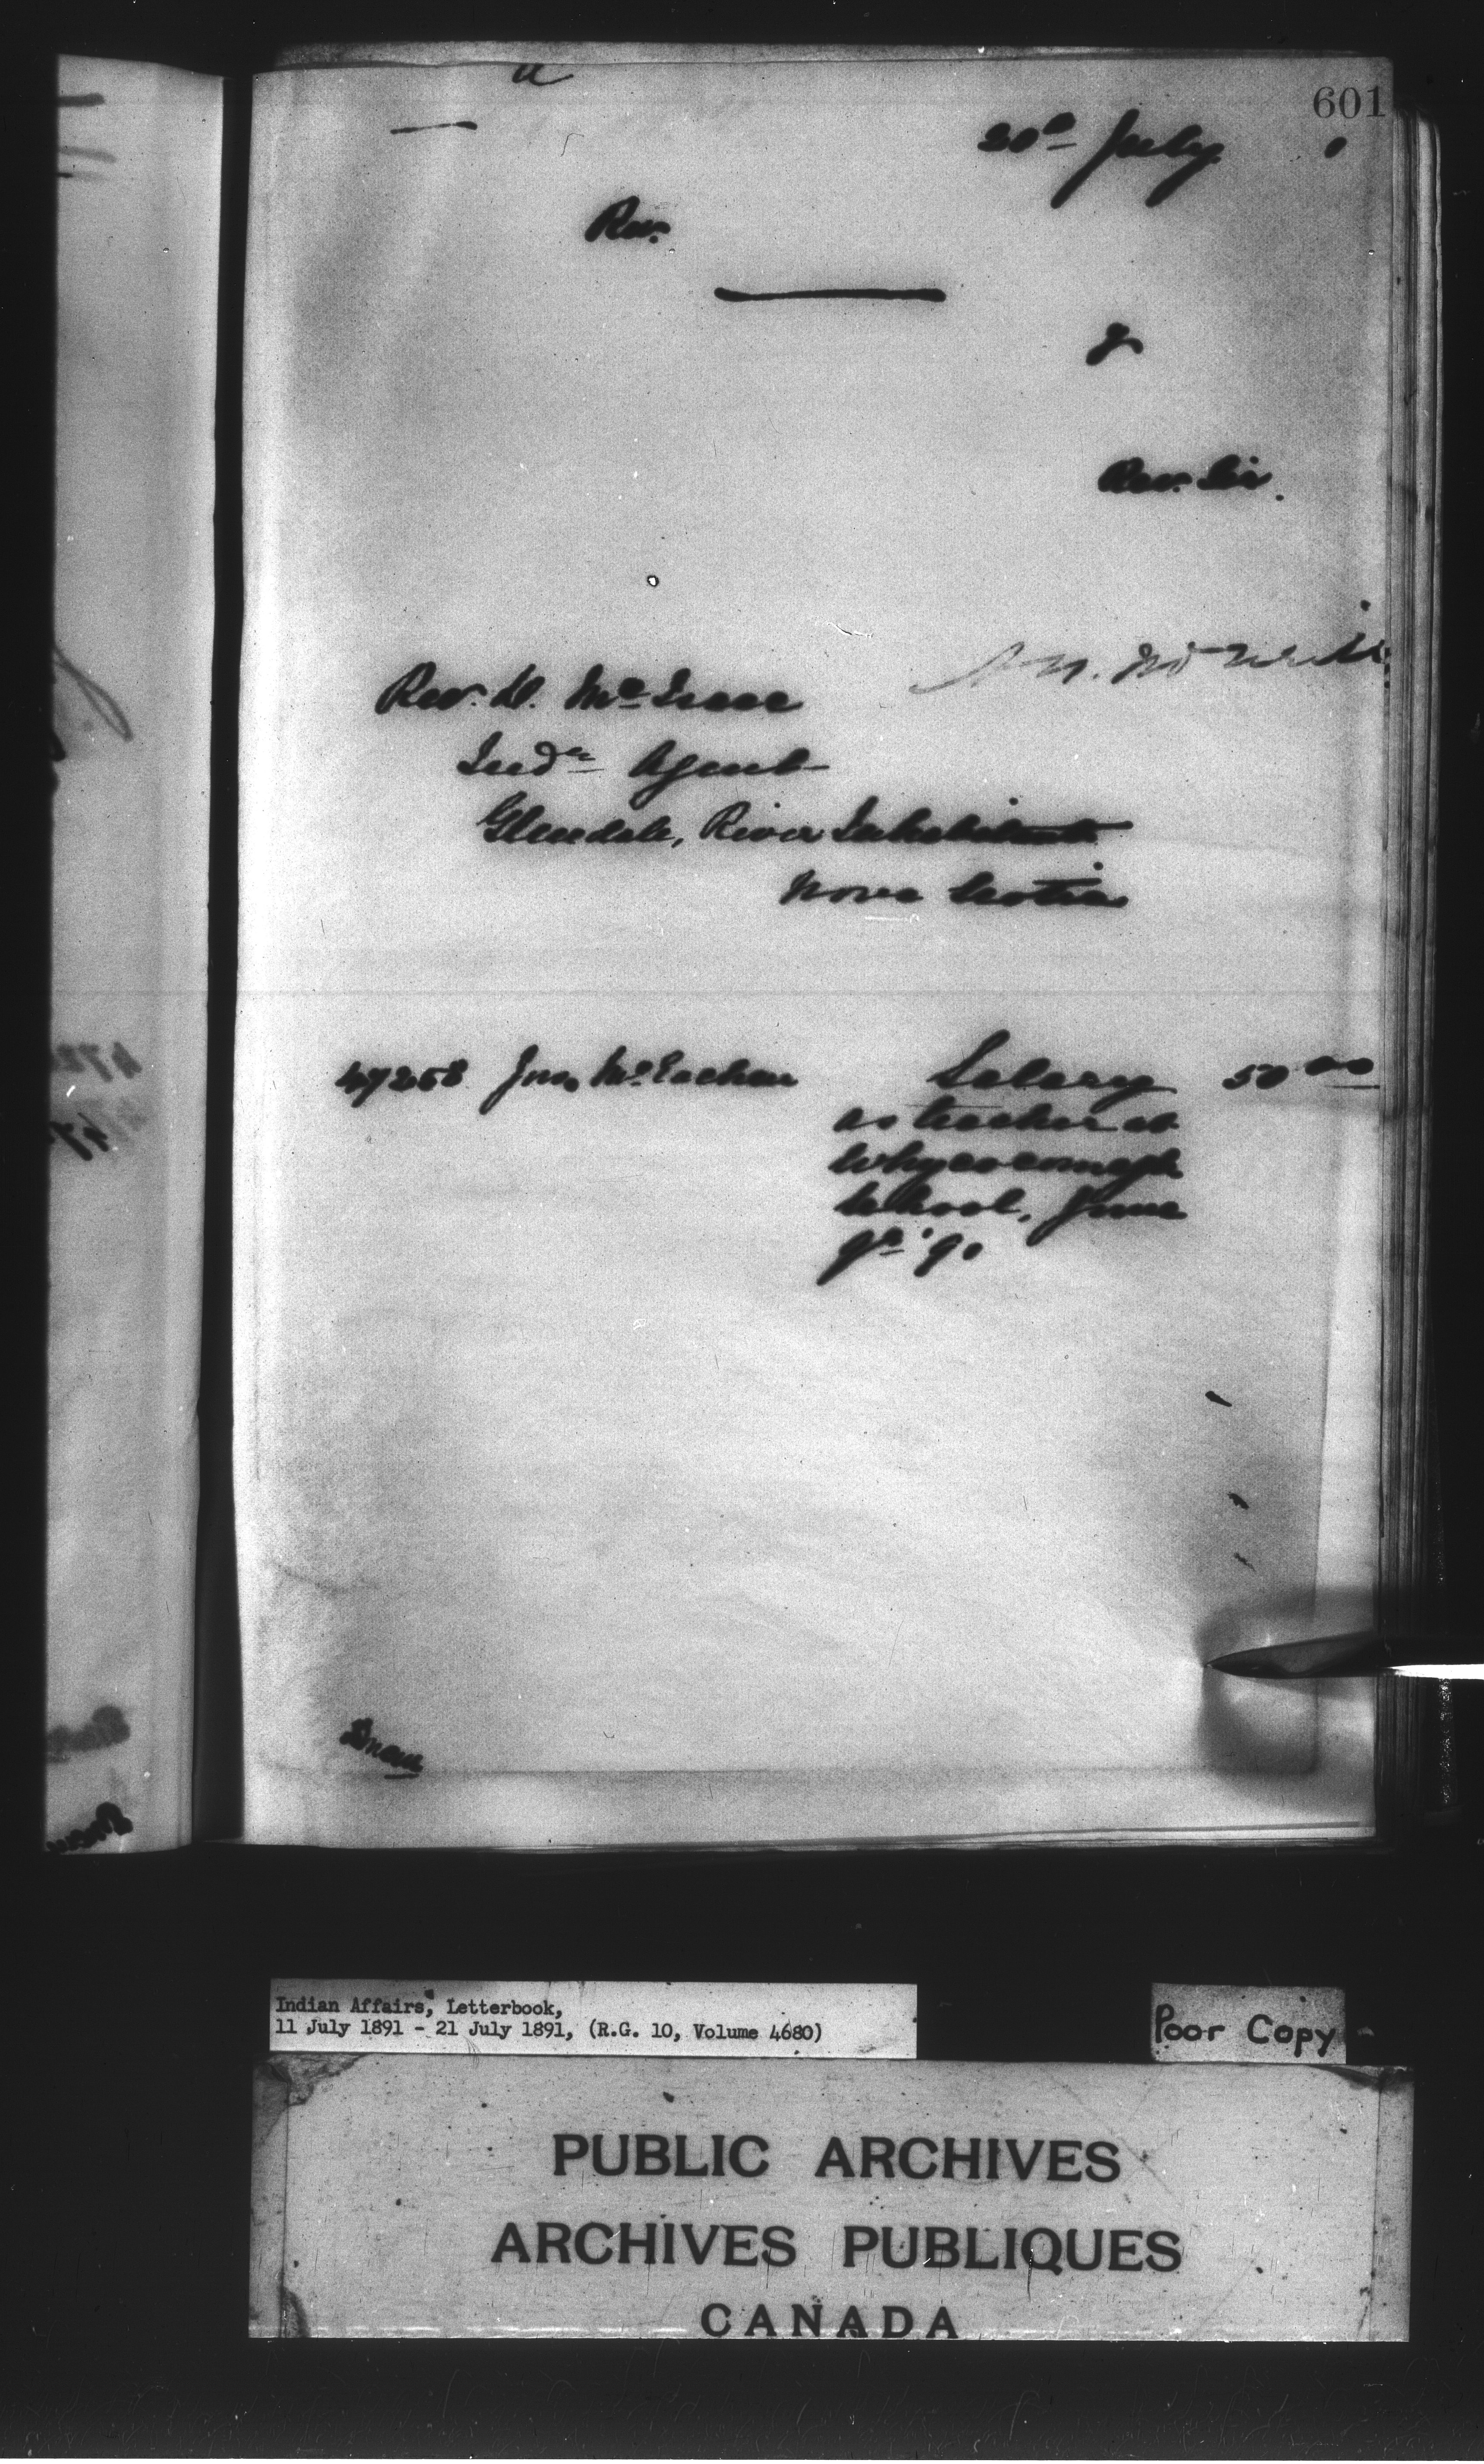 601
20th July
Rev.
Rev. Sir.
Rev. D. McIsaac
Indn Agent
Glendale, River Inhabitants
Nova Scotia
47258 Jno. McEachen Salary 50 00
as teacher at
Whycocomagh
School, June
qr '90
Indian Affairs, Letterbook,
11 July 1891 - 21 July 1891, (R.G. 10, Volume 4680)
Poor Copy
PUBLIC ARCHIVES
ARCHIVES PUBLIQUES
CANADA